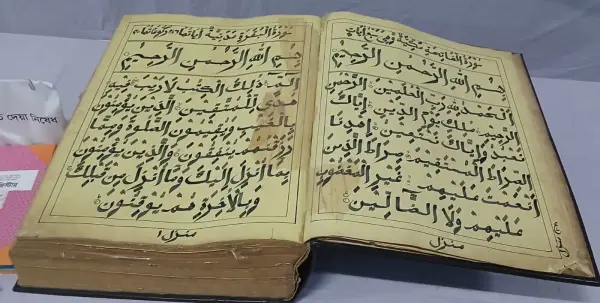 سورة الفاتحة مكية وهي سبع آيات
بسم الله الرحمن الرحيم
الحمد لله رب العلمين الرحمن
الرحيم ملك يوم الدين اياك
نعبد واياك نستعين اهدنا
الصراط المستقيم صراط الذين
انعمت عليهم غير المغضوب
عليهم ولا الضالين
منزل
سورة البقرة مدنية
بسم الله الرحمن الرحيم
الم ذلك الكتب لا ريب فيه
هدى للمتقين الذين يؤمنون
بالغيب ويقيمون الصلوة ومما
رزقنهم ينفقون والذين يؤمنون
بما انزل اليك وما انزل من قبلك
وبالاخرة هم يوقنون
منزل ١
দেয়া নিষেধ